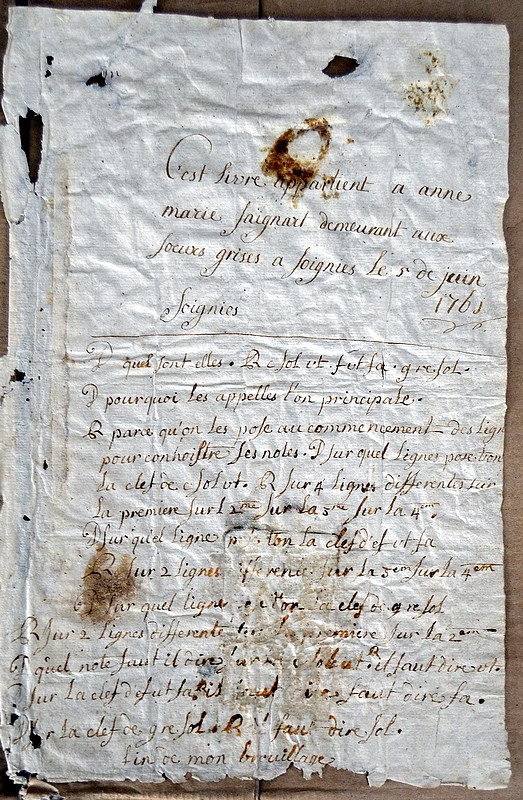 C'est livre appartient a anne
marie saignart demeurant aux
soeurs grises a soignies le 5 de juin
1761
Soignies
D quel sont elles. R c sol ut f ut fa. g re sol.
D pourquoi les appelles t'on principale.
R parce qu'on les pose au commencement des lign
pour conhoistre ses notes. D sur quel lignes pose t'on
la clef de c sol ut. R sur 4 lignes differentes sur
la premiere sur l 2me sur la 3me sur la 4em.
D sur quel ligne t'on la clef d'ef ut fa
R sur 2 lignes sur la 3em sur la 4em
sur quel ligne t'on la clef de g re sol
R sur 2 lignes differente premiere sur la 2em
D quel note faut il dire sur c sol ut. R il faut dire ut.
sur la clef de f ut fa. faut dire fa.
sur la clef de g re sol. R il faut dire sol.
fin de mon brouillage